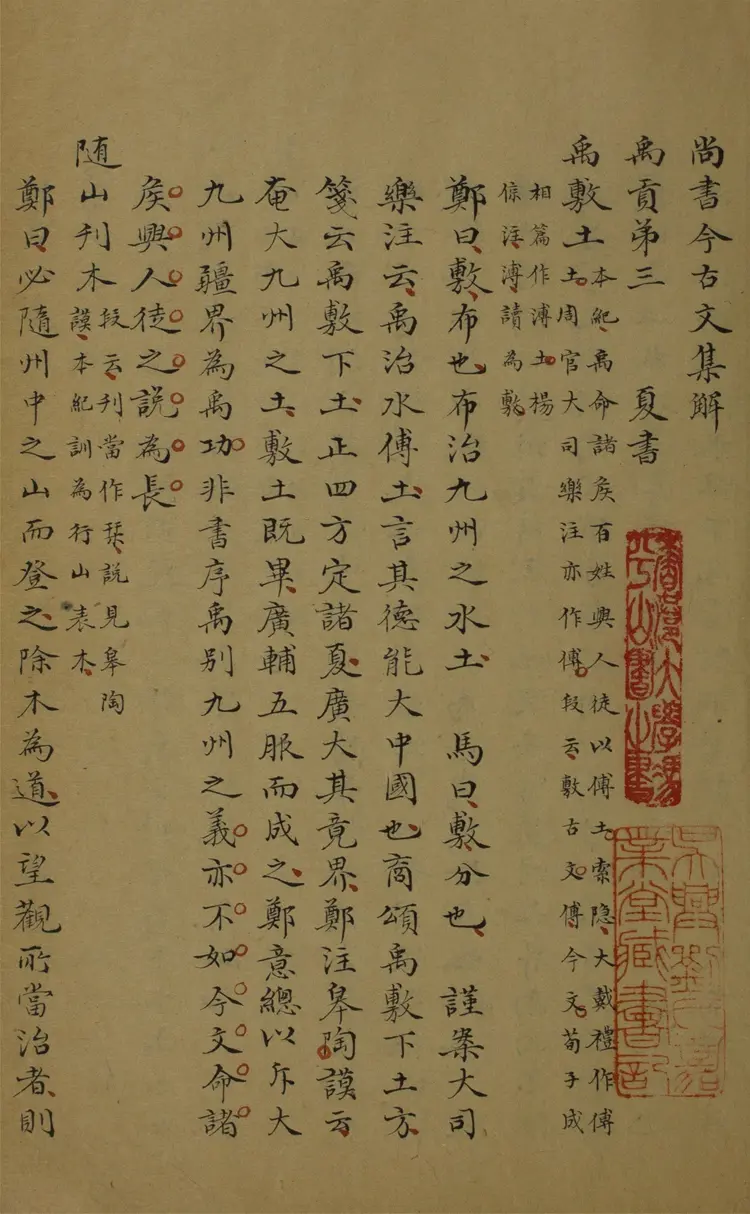 尚書今古文集解
禹貢第三　夏書
禹敷土
土本紀禹命諸矦百姓興人徒以傅土索隐大戴禮作傅
土周官大司樂注亦作傅段云敷古文傅今文荀子成
相篇作溥土楊
倞注溥讀為敷
鄭曰敷布也布治九州之水土　馬曰敷分也　謹案大司
樂注云禹治水傅土言其德能大中國也商頌禹敷下土方
箋云禹敷下土正四方定諸夏廣大其竟界鄭注皋陶謨云
奄大九州之土敷土既畢廣輔五服而成之鄭意總以斥大
九州疆界為禹功非書序禹别九州之義亦不如今文命諸
矦興人徒之説為長
随山刋木
段云刋當作栞説見皋陶
謨本紀訓為行山表木
鄭曰必隨州中之山而登之除木為道以望觀所當治者則